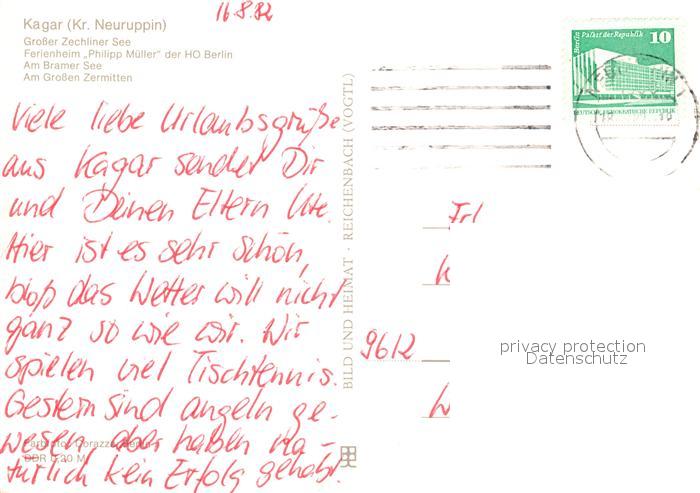 16.8.82
Kagar (Kr. Neuruppin)
Großer Zechliner See
Ferienheim „Philipp Müller" der HO Berlin
Am Bramer See
Am Großen Zermitten
Viele liebe Urlaubsgrüße
aus Kagar sendet Dir
und Deinen Eltern Ute.
Hier ist es sehr schön,
bloß das Wetter will nicht
ganz so wie wir. Wir
spielen viel Tischtennis.
Gestern sind angeln ge-
wesen, aber haben na-
türlich kein Erfolg gehabt.
DDR 0,20 M
BILD UND HEIMAT · REICHENBACH (VOGTL)
Berlin Palast der Republik
10
DEUTSCHE DEMOKRATISCHE REPUBLIK
Frl
9612
privacy protection
Datenschutz